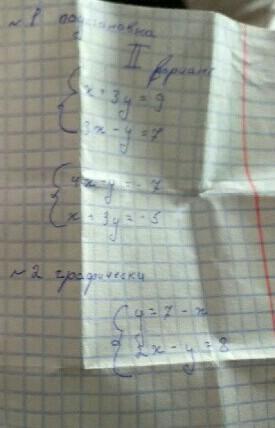 №1 подстановка
II
вариант
x + 3y = 9
3x - y = 7
4x - y = - 7
x + 3y = - 5
№2 графически
y = 7 - x
2x - y = 8